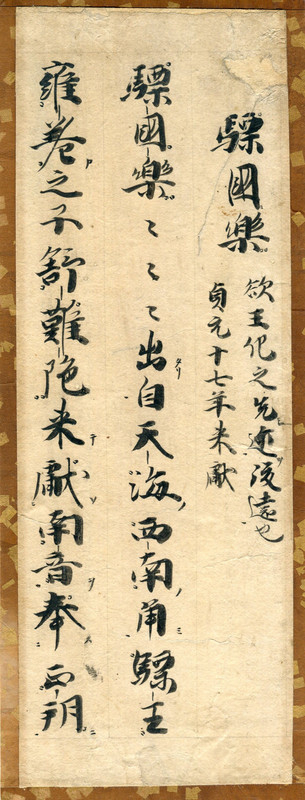 驃國樂
欲王化之先迩後遠也
貞元十七年来献
驃國樂〻〻〻出自天海西南角驃王
雍巻之子舒難陁来獻南音奉正朔